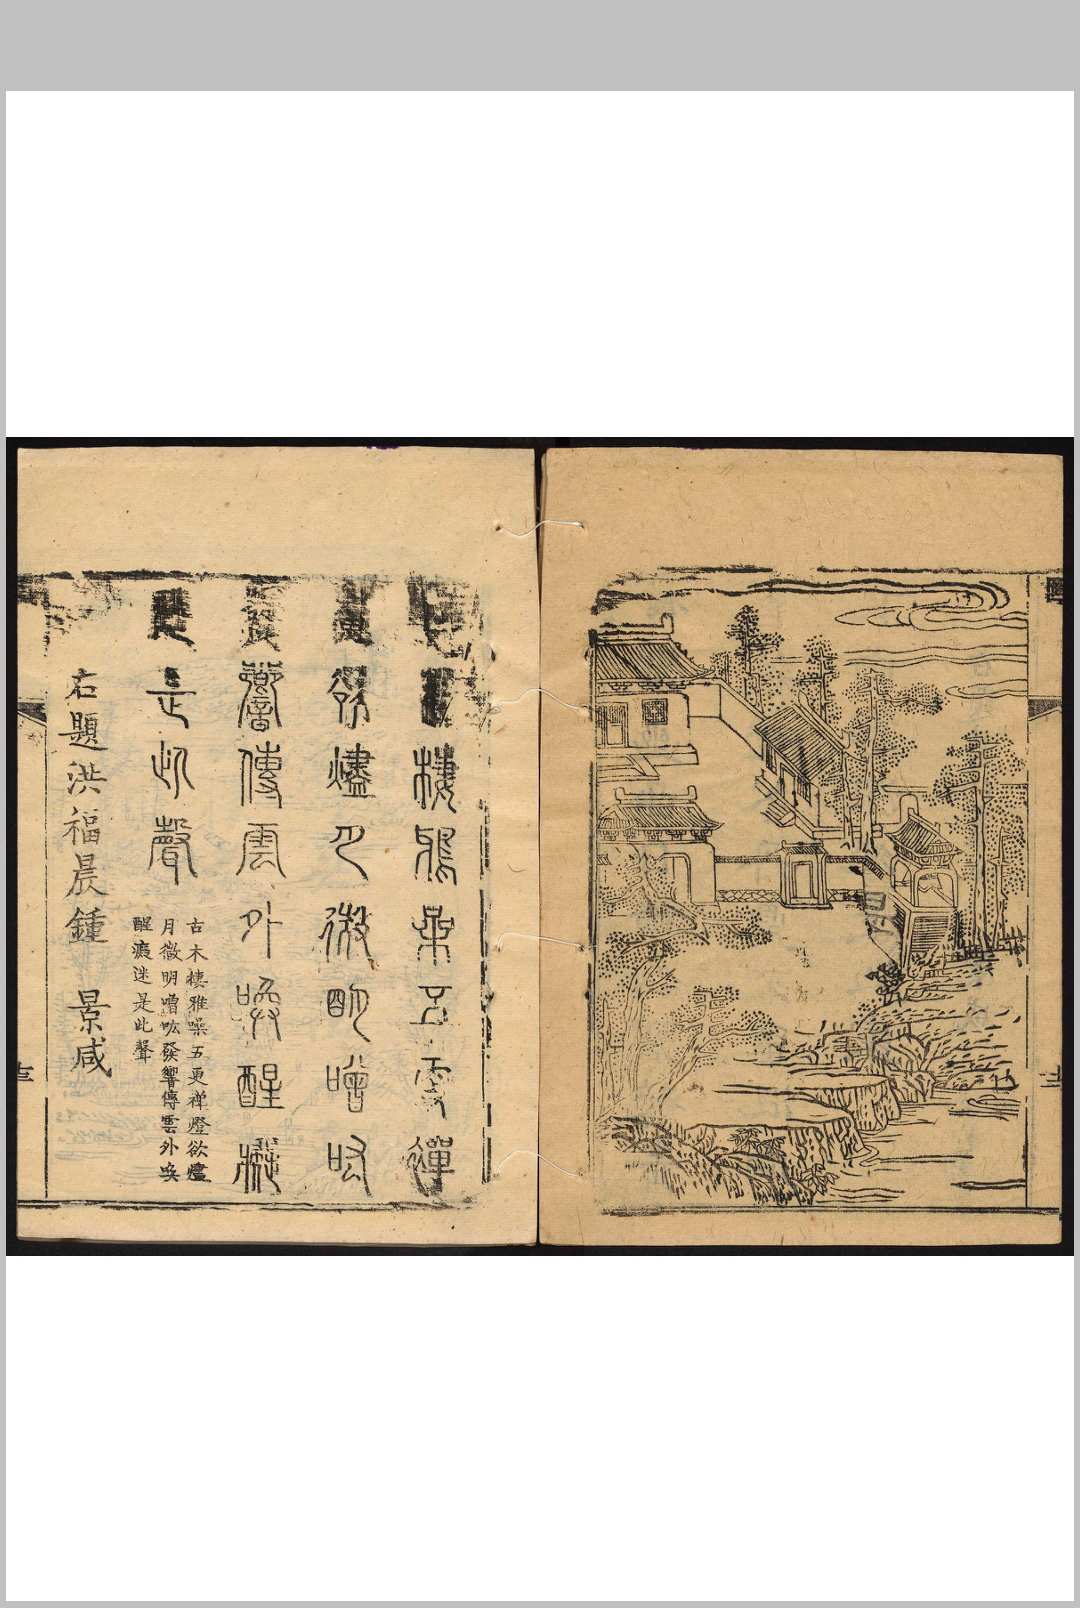 棲鴉噪五更禪
欲燼月微明噌吰
發響傳雲外喚醒癡
是此聲
古木棲雅噪五更禅燈欲燼
月微明噌吰發響傳雲外喚
醒癡迷是此聲
右題洪福晨鍾 景咸